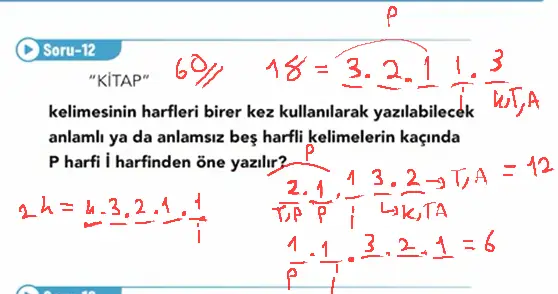 P
Soru-12
"KİTAP" 60// 18 = 3. 2. 1 1. 3
i K,T,A
kelimesinin harfleri birer kez kullanılarak yazılabilecek
anlamlı ya da anlamsız beş harfli kelimelerin kaçında
P harfi İ harfinden öne yazılır?
P
2. 1. 1 3. 2 → T,A = 12
T,P P i ↳ K,TA
24 = 4. 3. 2. 1. 1
i
1. 1. 3. 2. 1 = 6
P i